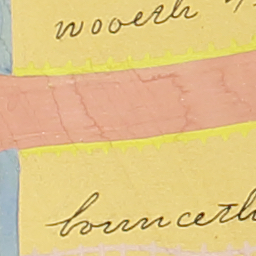 wooeth
bounceth